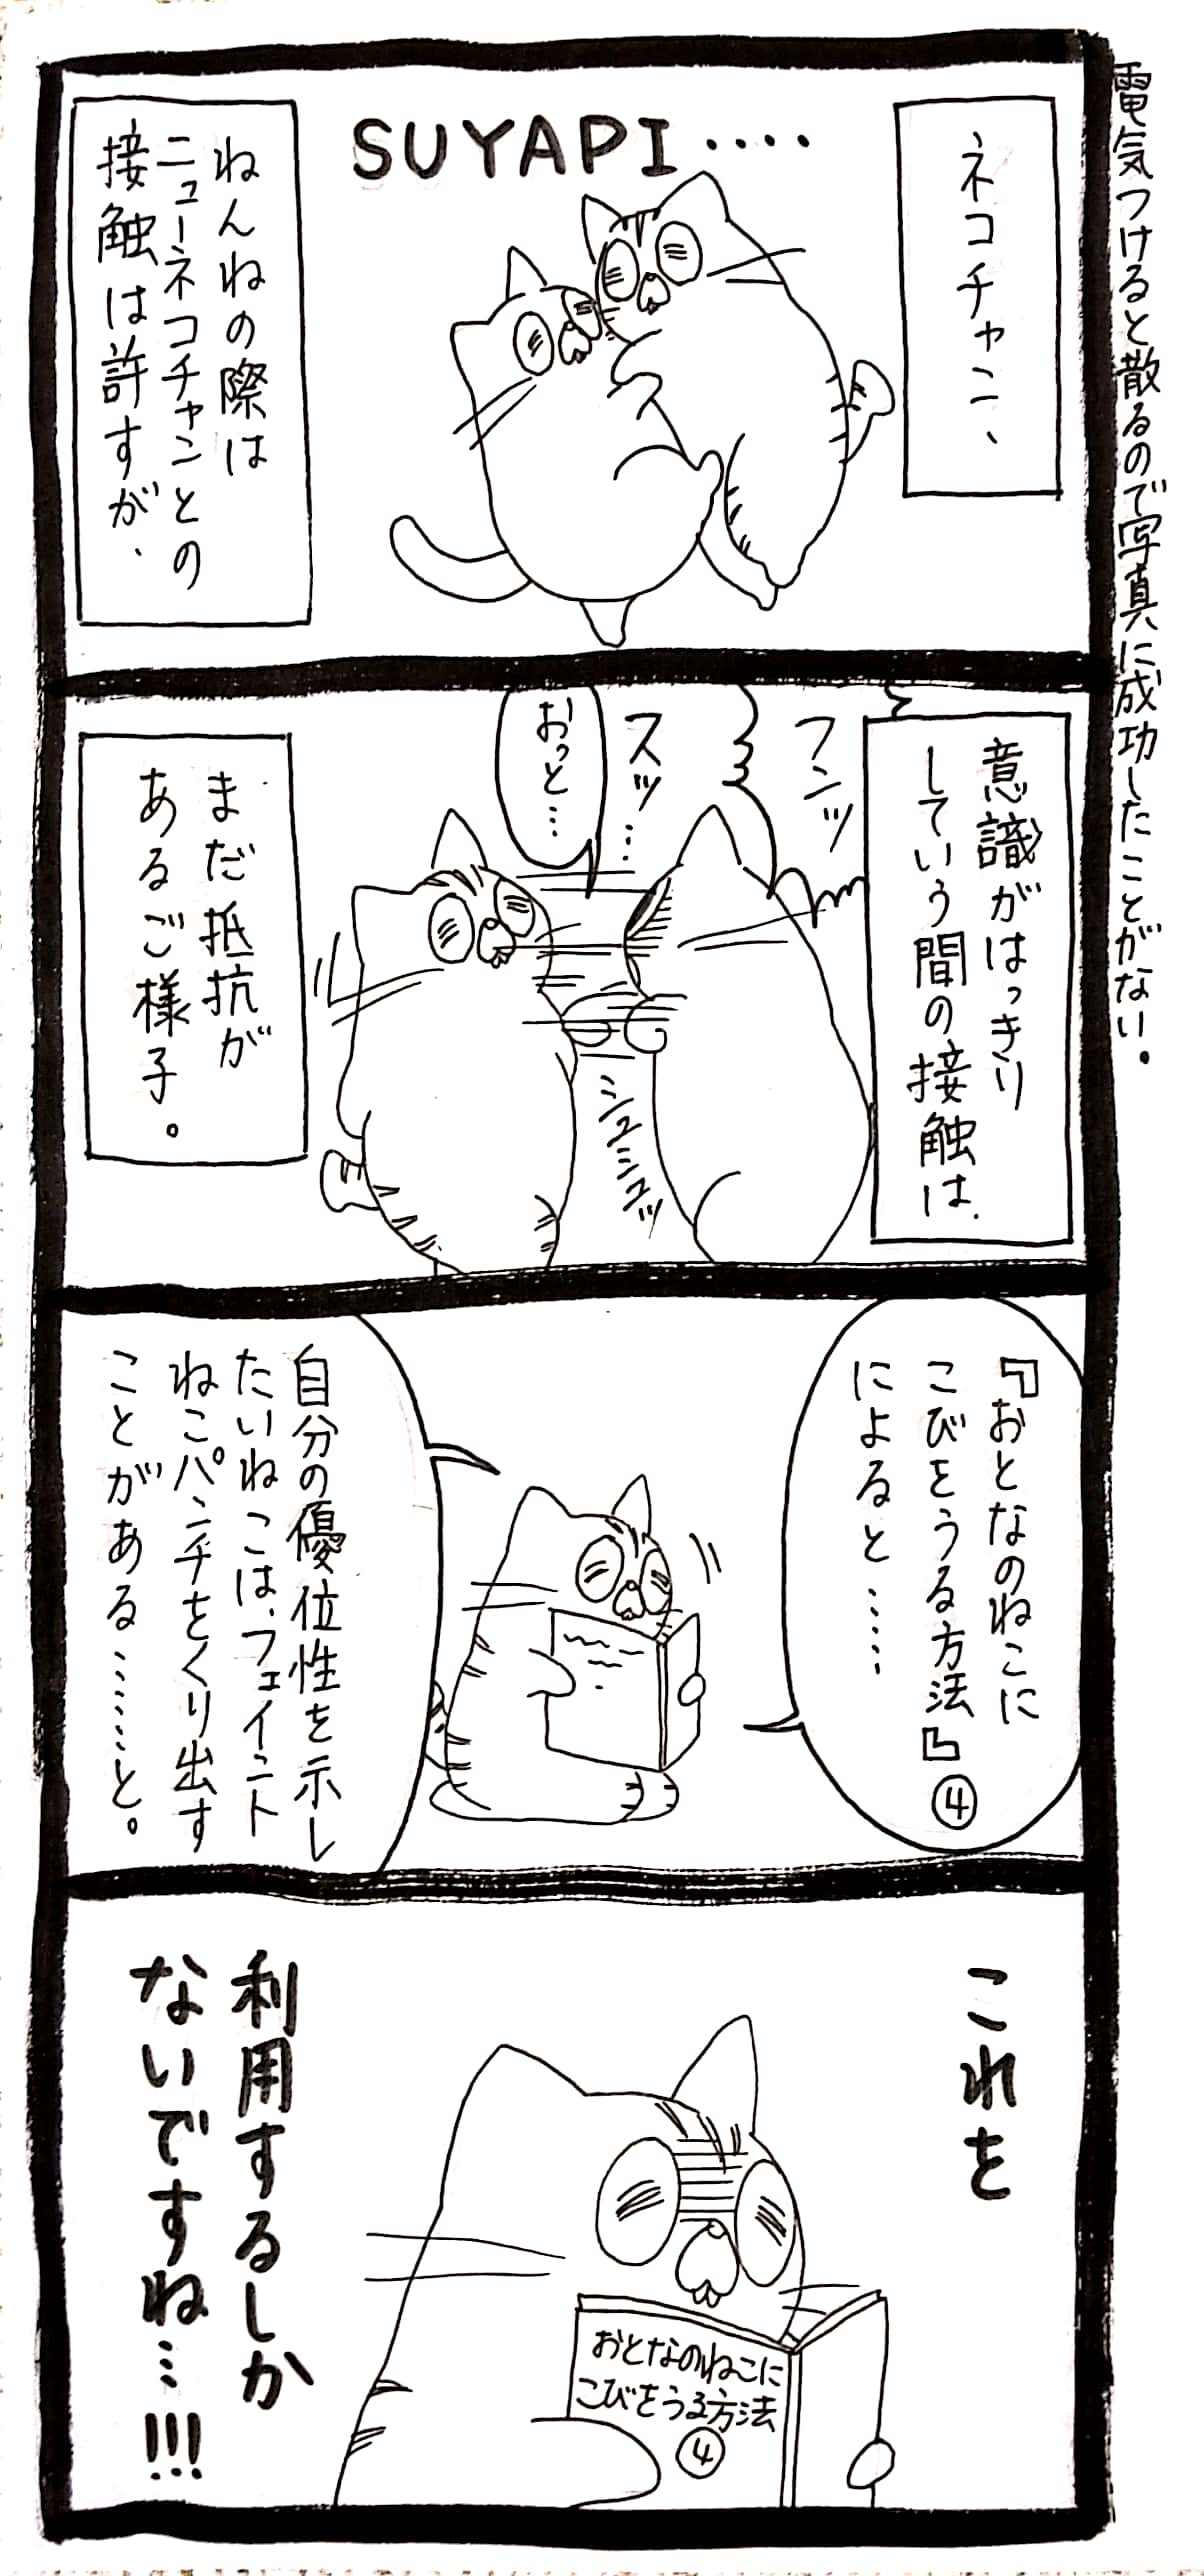 電気つけると散るので写真に成功したことがない。
ネコチャン、
SUYAPI‥‥
ねんねの際は
ニューネコチャンとの
接触は許すが、
意識がはっきり
している間の接触は、
フンッ
スッ…
おっと…
シュシュッ
まだ抵抗が
あるご様子。
『おとなのねこに
こびをうる方法』④
によると……
自分の優位性を示し
たいねこは、フェイント
ねこパンチをくり出す
ことがある………と。
これを
利用するしか
ないですね…!!!
おとなのねこに
こびをうる方法
④